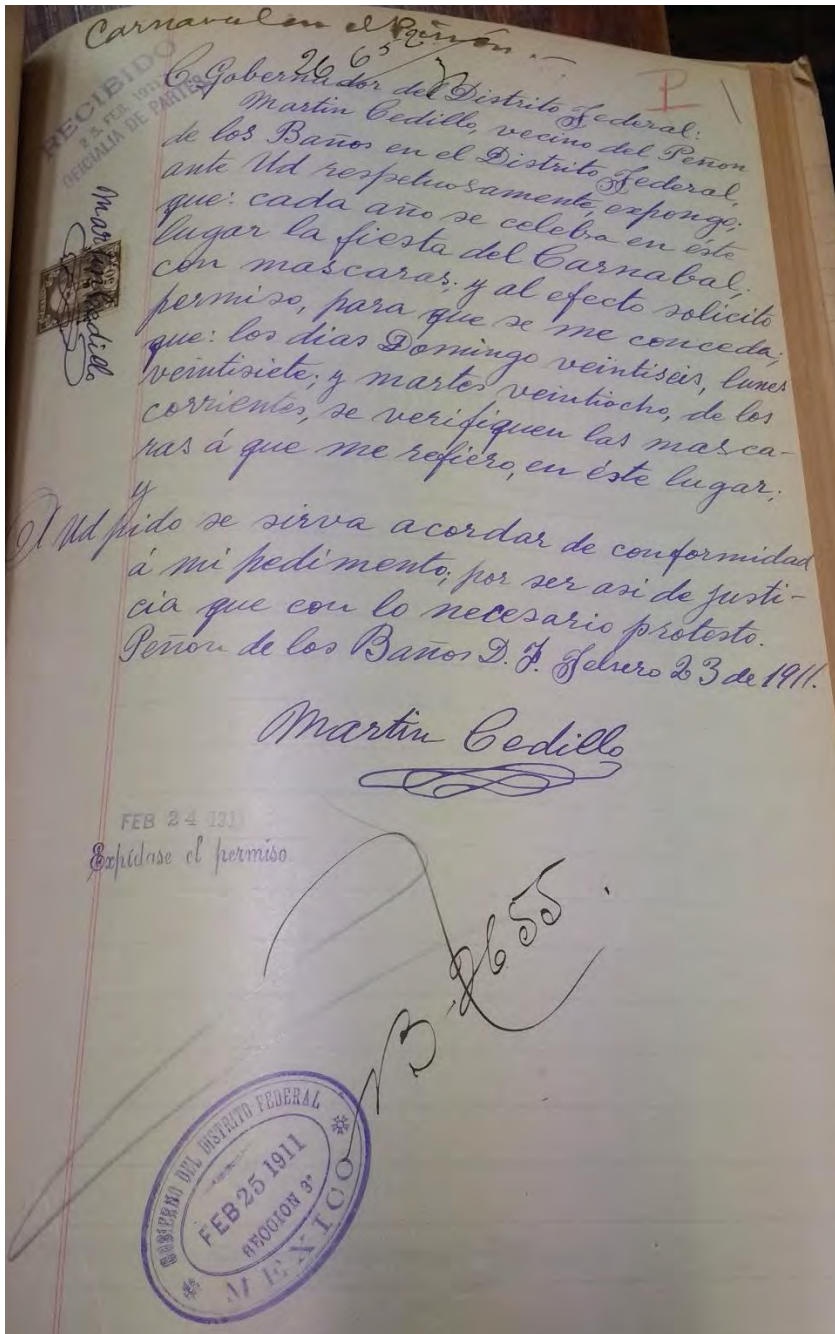 Carnaval en el Peñón.
2652
RECIBIDO
23. FEB. 1911
OFICIALIA DE PARTES
C. Gobernador del Distrito Federal:
Martin Cedillo, vecino del Peñon
de los Baños en el Distrito Federal,
ante Ud respetuosamente, expongo;
que: cada año se celebra en éste
lugar la fiesta del Carnabal;
con mascaras; y al efecto solicito
permiso, para que se me conceda;
que: los dias Domingo veintiseis, lunes
veintisiete; y martes veintiocho, de los
corrientes, se verifiquen las masca-
ras á que me refiero, en éste lugar;
y
A Ud pido se sirva acordar de conformidad
á mi pedimento; por ser asi de justi-
cia que con lo necesario protesto.
Peñon de los Baños D. F. Febrero 23 de 1911.
Martin Cedillo
Martin Cedillo
FEB 24 1911
Expídase el permiso.
B-2655.
GOBIERNO DEL DISTRITO FEDERAL
FEB 25 1911
SECCION 3ª
MEXICO